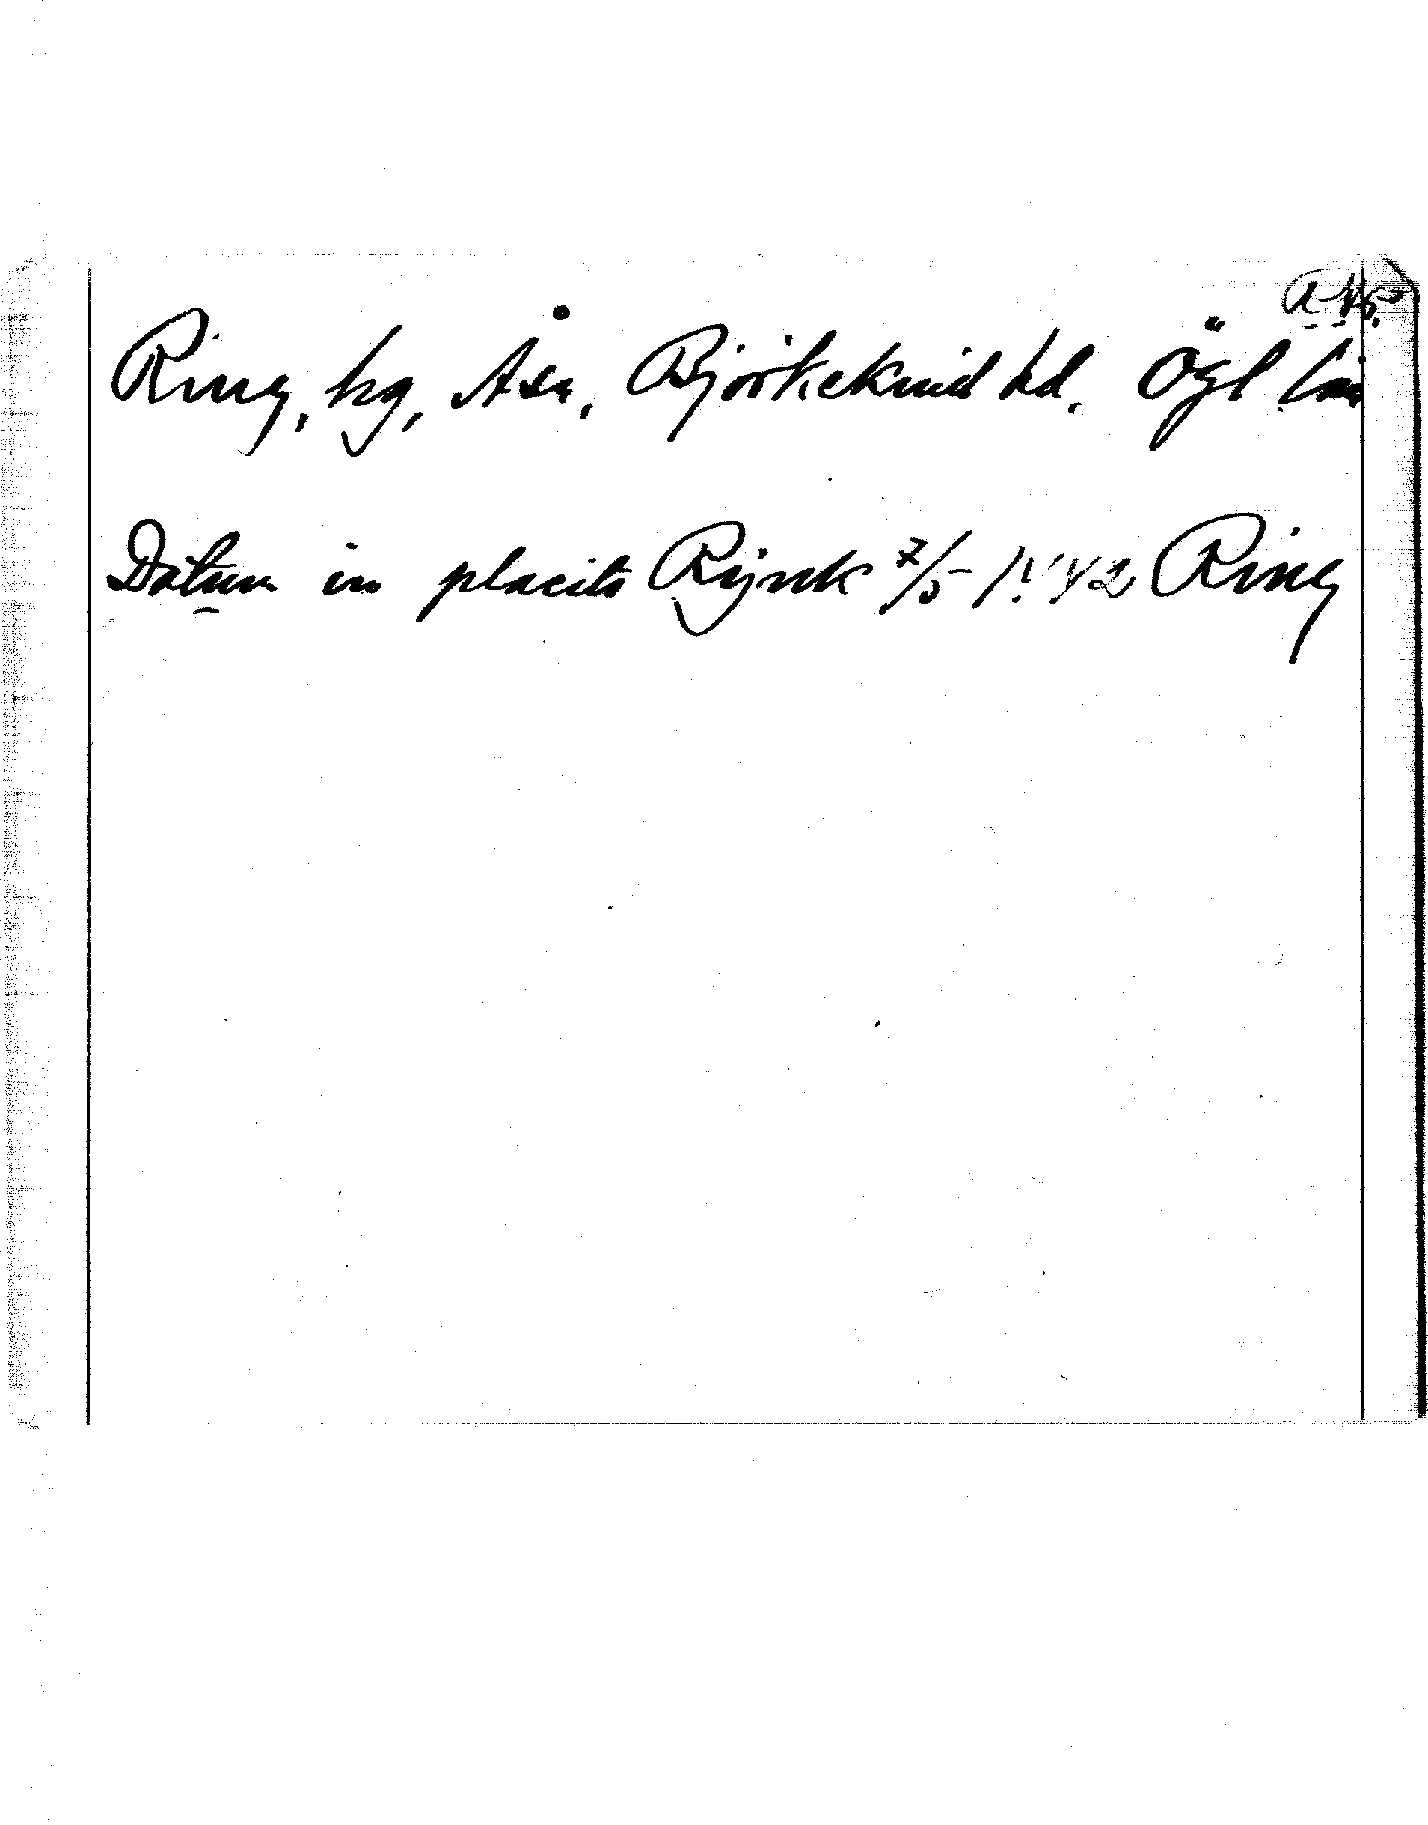 Ring, hg, Åsn, Björkekind hd. Ögl län
Datum in placito Rijnk 7/5 1442 Ring